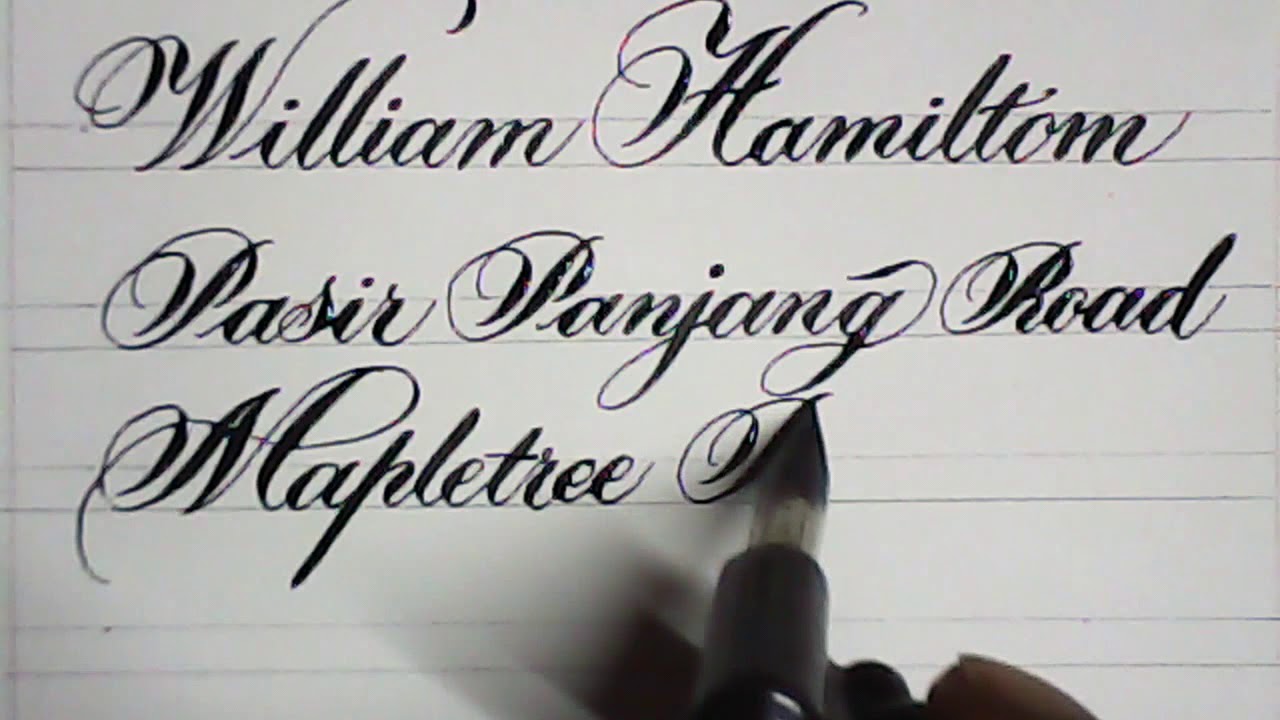 William Hamiltom
Pasir Panjang Road
Mapletree